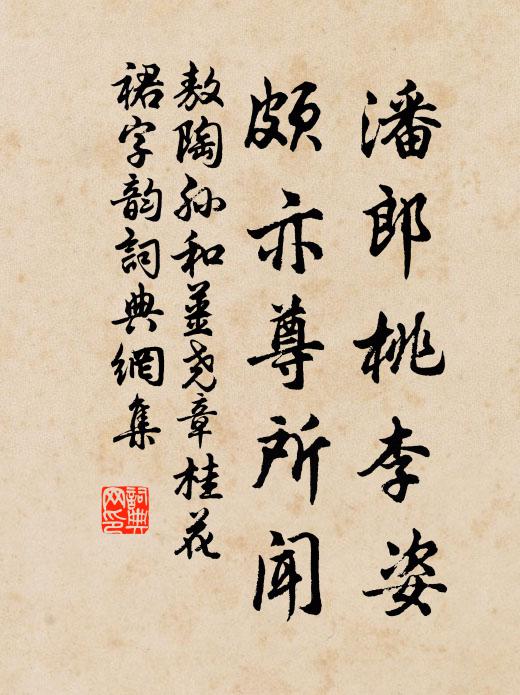 潘郎桃李姿
頗亦尊所聞
敖陶孙和姜尧章桂花
裙字韵詞典網集
詞典
网印